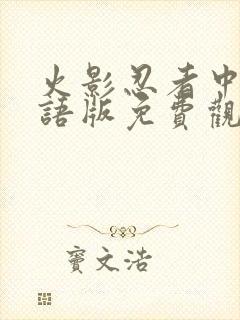 火影忍者中
語版免費觀
竇文浩